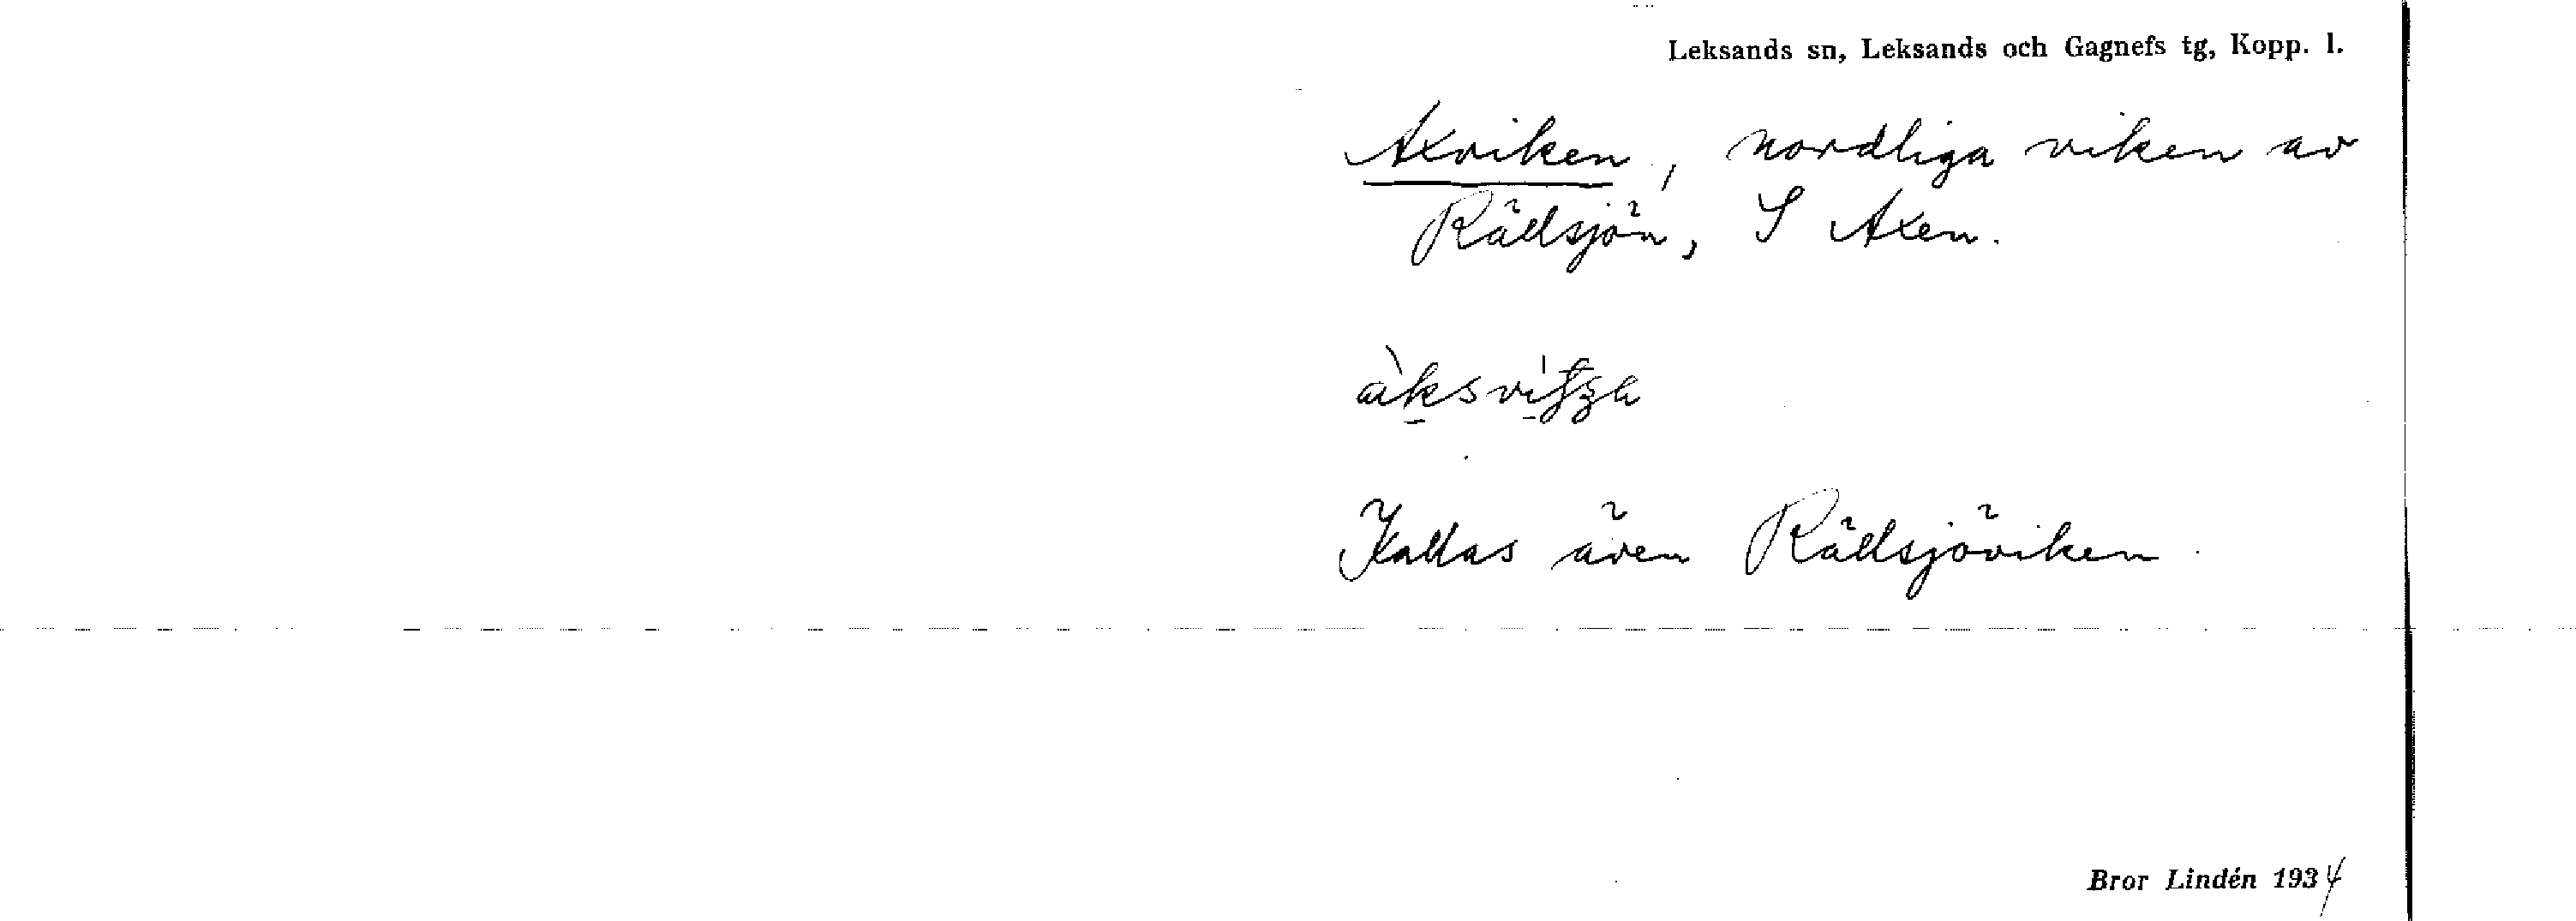 Leksands sn, Leksands och Gagnefs tg, Kopp. l.
Axviken, nordliga viken av
Rädsjön, S Axen.
Kallas även Rädsjöviken
Bror Lindén 1934